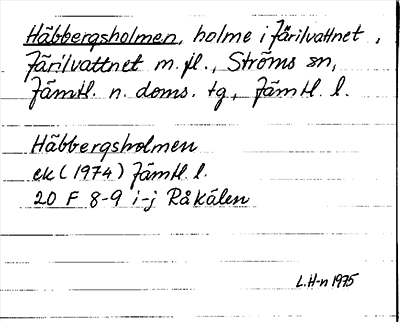 Häbbergsholmen, holme i Järilvattnet,
Järilvattnet m. fl., Ströms sn,
Jämtl. n. doms. tg, Jämtl. l.
Häbbergsholmen
ek (1974) Jämtl. l.
20 F 8-9 i-j Råkälen
L. H-n 1975